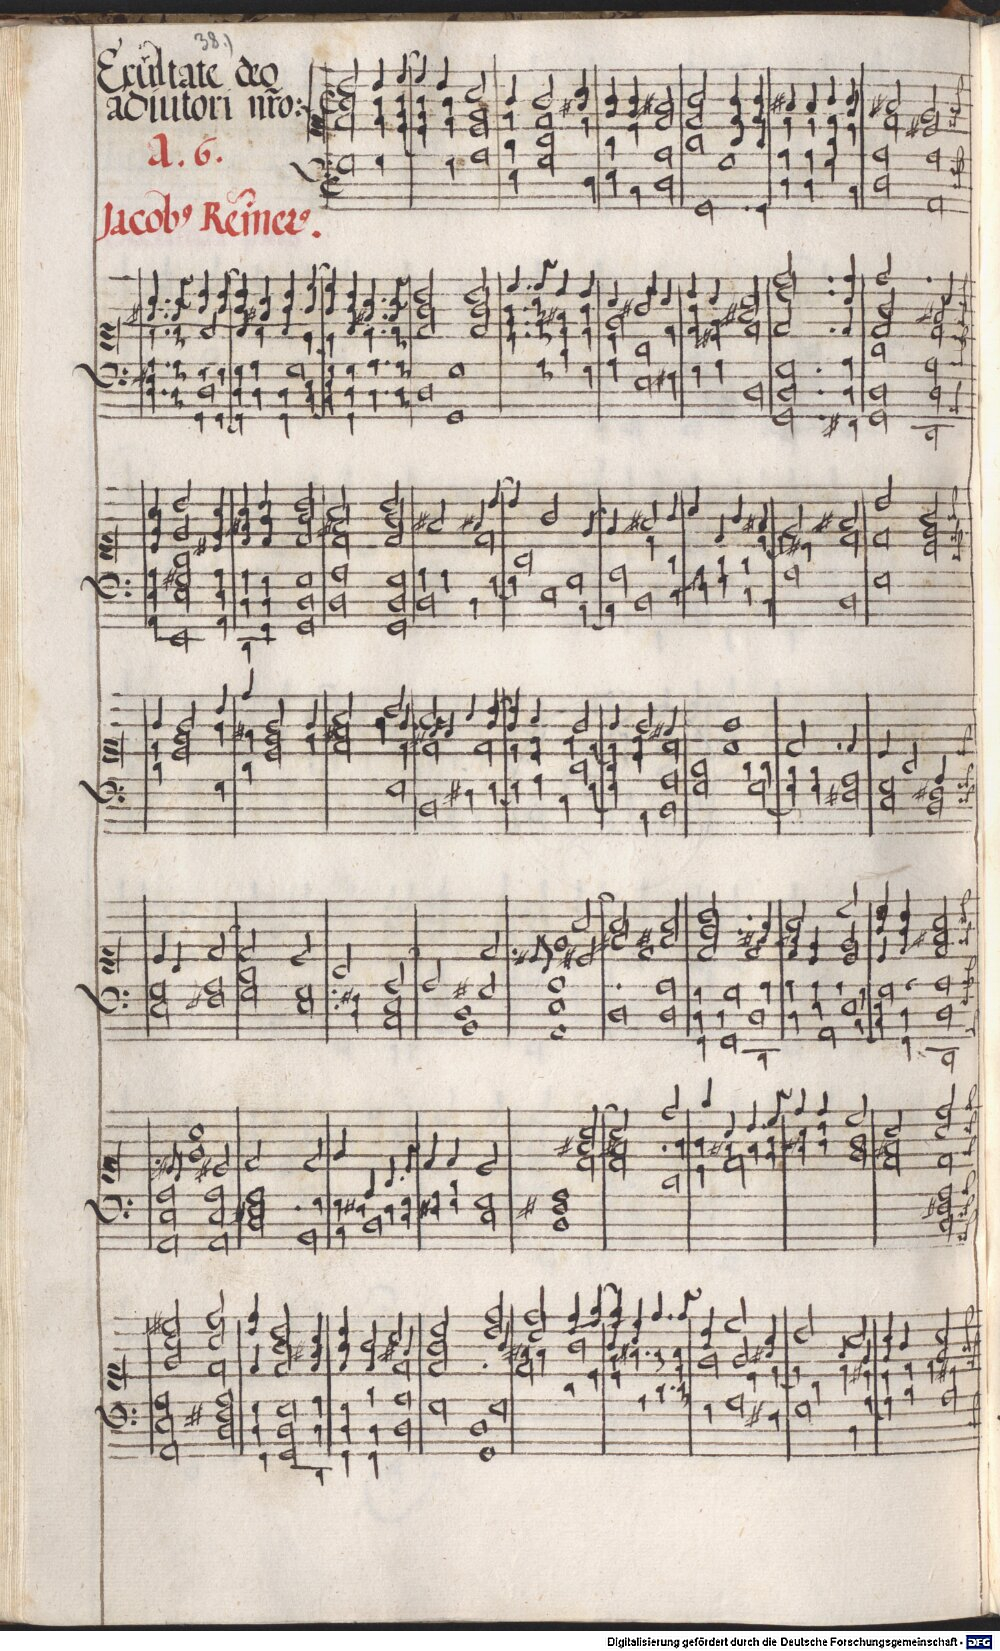 38.)
Exultate deo
adiutori nr̃o:
A. 6.
Jacobꝰ Reinerꝰ.
Digitalisierung gefördert durch die Deutsche Forschungsgemeinschaft - DFG